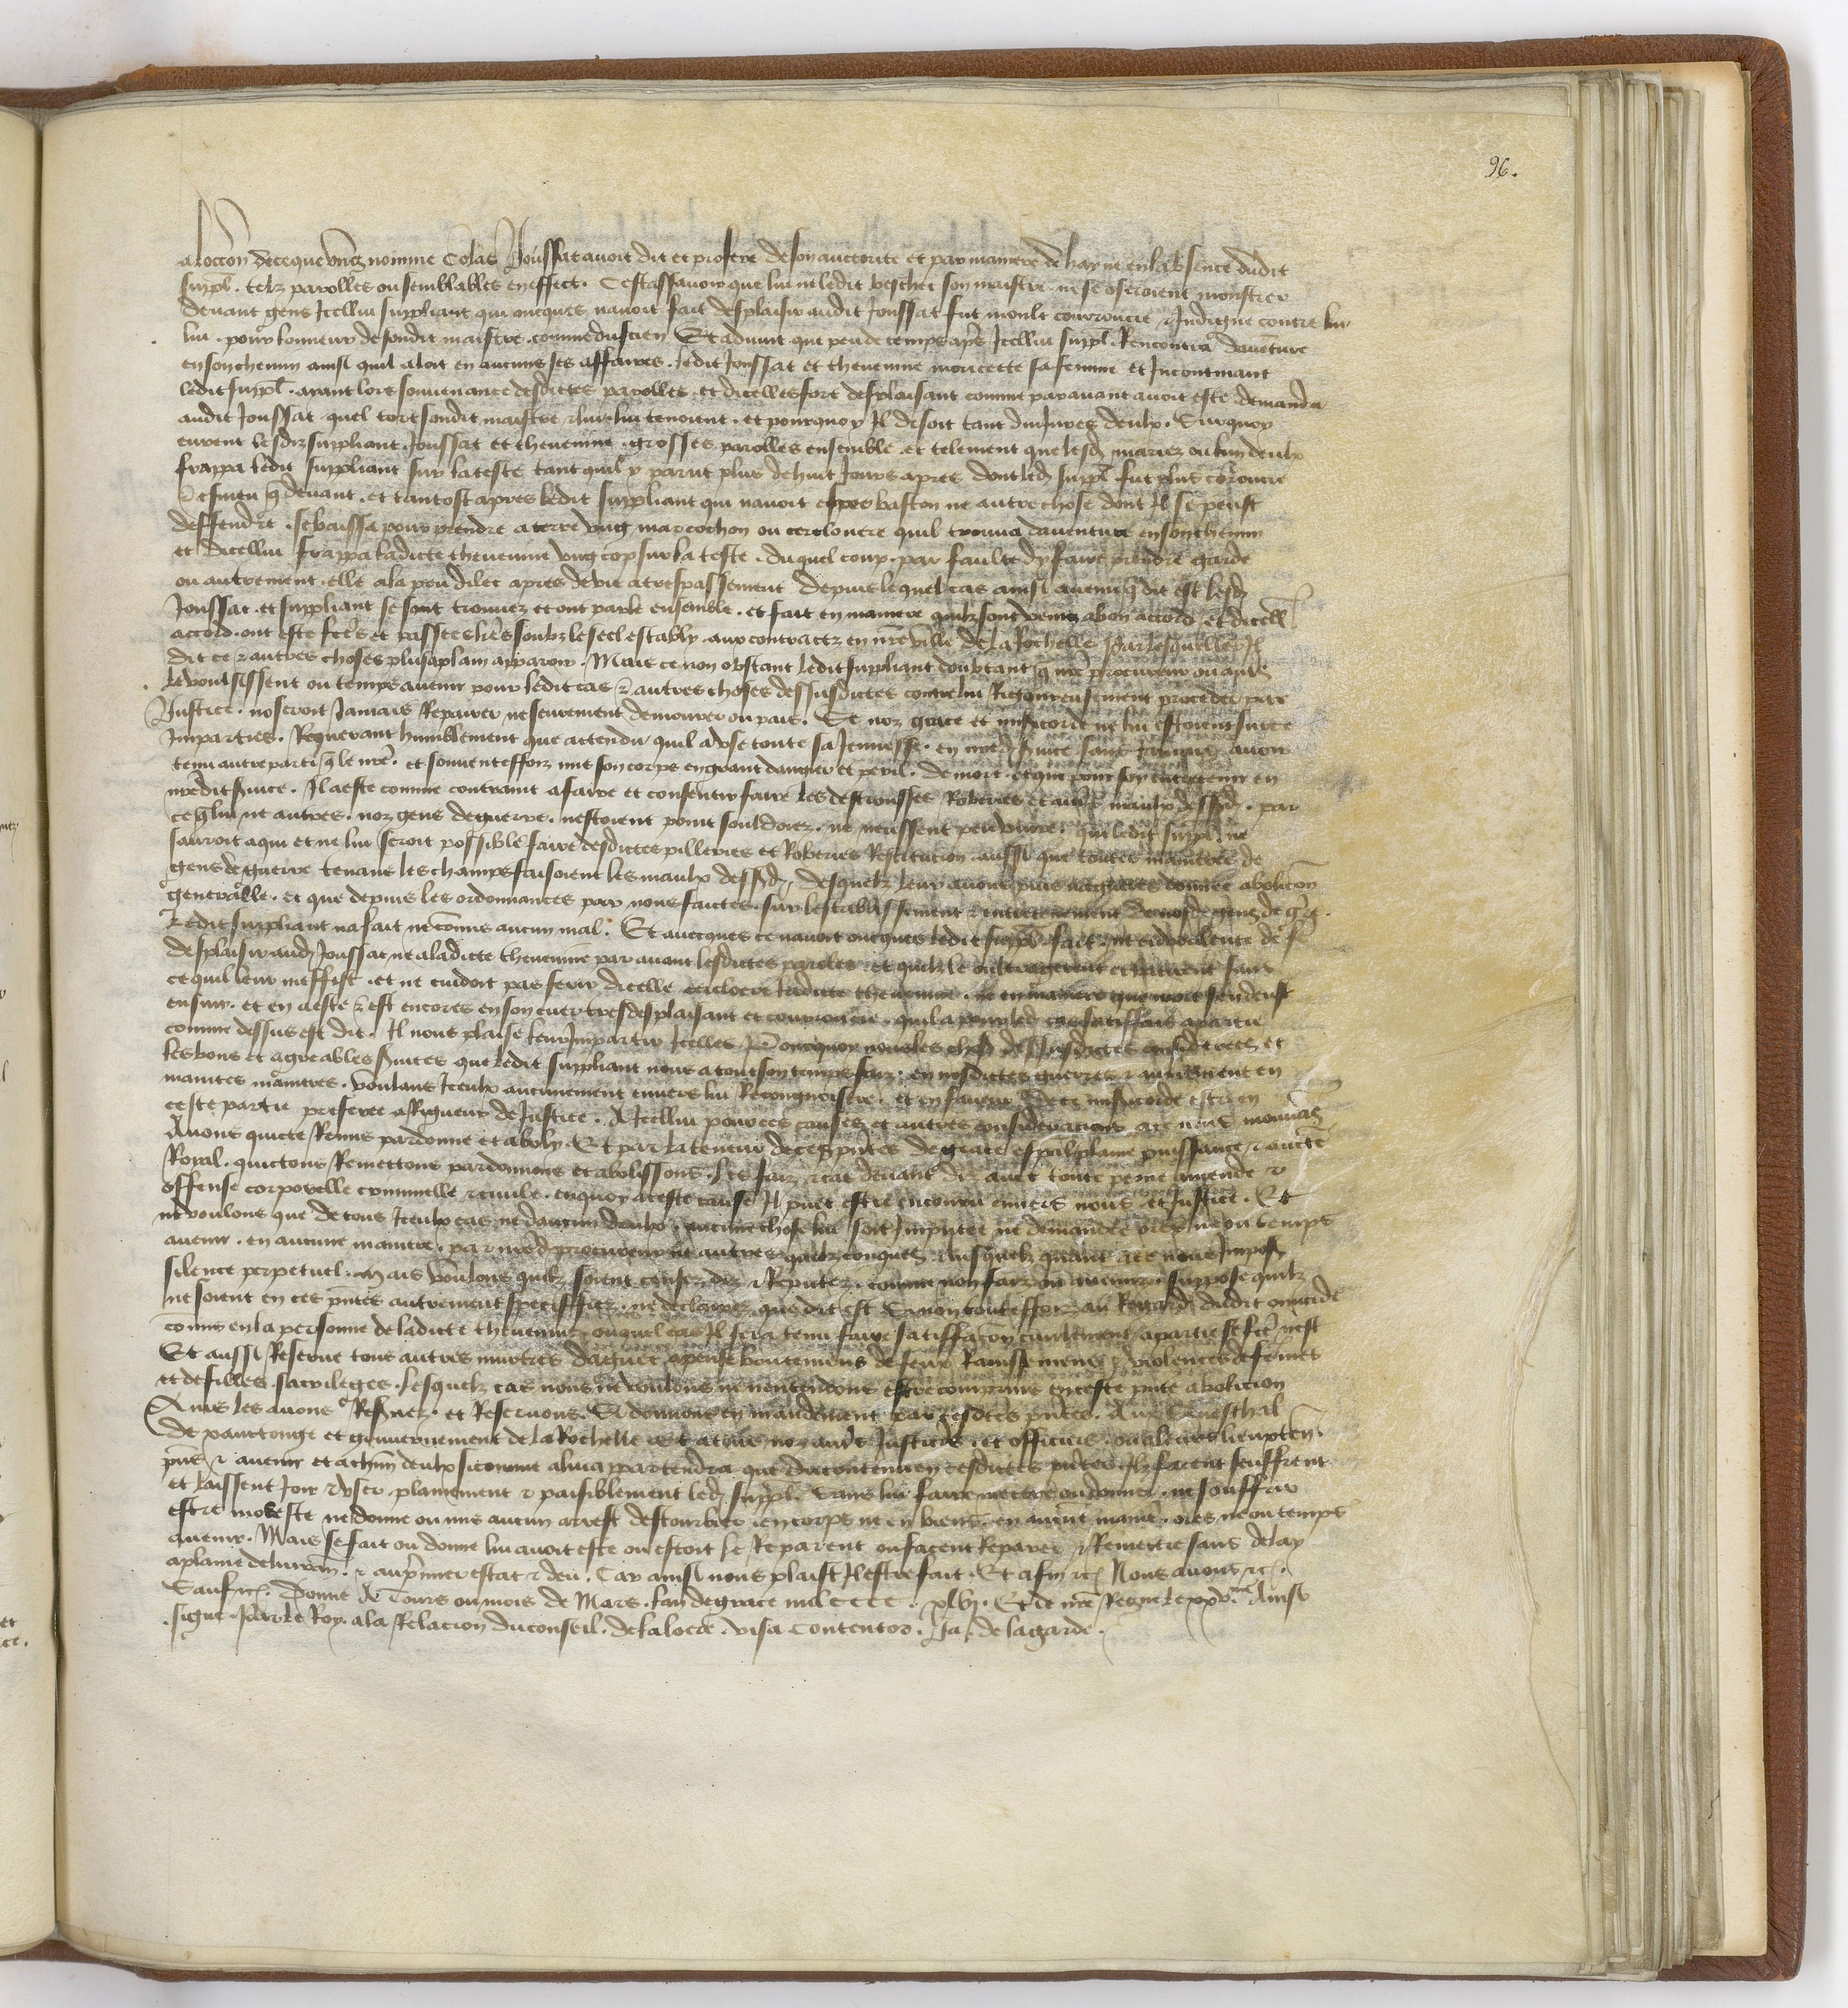 96.
a loccon de ce que ung nomme Colas Joussat avoit dit et profere de son auctorite et par maniere de hayne en labsence dudit
suppl. telz parolles ou semblables en effect. Cestassavoir que lui ne ledit veschet son maistre ne se oseroient monstrer
devant gens Icellui suppliant qui oncques navoit fait desplaisir audit Joussat fut moult courroucie & Indigne contre lui
lui. pour honneur de sondit maistre. comme du scien Et advint que peu de temps apres Icellui suppl. Rencontra daventure
en son chemin ainsi quil aloit en aucuns ses affaires. ledit Joussat et thevenine moricette sa femme et Incontinant
ledit suppl. ayant lors souvenance desdictes parolles et dicelles fort desplaisant comme paravant avoit este demanda
audit Joussat quel tort sondit maistre & lui lui tenoient. et pourquoy Il disoit tant dinjures deulx. Surquoy
eurent lesdiz suppliant. Joussat et thevenine. grosses parolles ensemble. et telement que lesd mariez ou lun deulx
frappa ledit suppliant sur la teste tant quil y parut plus de huit Jours apres dont led suppl. fut plus corouce
& esmeu q devant. et tantost apres ledit suppliant qui navoit baston ne autre chose dont Il se peust
deffendre. se baissa pour prendre a terre ung marcochon ou cercloere quil trouva daventure en son chemin
et dicellui frappa ladicte thevenine ung cop sur la teste. duquel coup. par faulte dy faire prendre garde
ou autrement. elle ala apres de vie a trespassement depuis lequel cas ainsi avenu q dit est lesd
Joussat. et suppliant se sont trouvez et ont parle ensemble. et fait en maniere quilz sont venuz a bon accord et dicell
accord. ont este fces et passees lres soubz le seel estably aux contractz en nre ville de la Rochelle par lesquelles Il
dit ce & autres choses plus a plain apparoir. Mais ce non obstant ledit suppliant doubtant q nre procureur ou autre
le voulsissent ou temps avenir pour ledit cas & autres choses dessusdictes contre lui Rigoureusement proceder par
Justice. noseroit Jamais Repairer ne seurement demourer ou pais. Se noz grace et misericorde ne lui estoient sur ce
Imparties. Requerant humblement que actendu quil a use toute sa Jeunesse. en nred service sans Jamais avoir
tenu autre parti q le nre. et souventesfoiz mis son corps en grant dangier et peril. de mort. et que pour soy entretenir en
nredit service. Il a este comme contraint a faire et consentir faire les destrousses Roberies et autres maulx dessusd. par
ce q lui ne autres. noz gens de guerre. nestoient point souldoiez. ne neussent peu vivre. Que ledit suppl. ne
sauroit a qui et ne lui seroit possible faire desdictes pilleries et Roberies Restitucion. aussi que toutes manieres de
gens de guerre tenans les champs faisoient les maulx dessusd. desquelz leur avons puis nagueres donnee abolicion
generalle. et que depuis les ordonnances par nous faictes. sur lestablissement & entretenement de nosd. gens de gre.
Ledit suppliant na fait ne commis aucun mal. Et avecques ce navoit oncques ledit suppl. fait ne
desplaisir aud Joussat ne a ladicte thevenine par avant lesdictes paroles. et quilz le oultragerent et batirent sans
ce quil leur meffist. et ne cuidoit pas ferir dicelle cercloere ladicte thevenine. ne en maniere que mort sen deust
ensuir. et en a este & est encores en son cuer tresdesplaisant et courroucie. quil a pour led cas satisfait a partie
comme dessus est dit. Il nous plaise leur Impartir Icelles Pourquoy nous les choses dessusdictes considerees et
les bons et agreables services que ledit suppliant nous a tout son temps faiz. en nosdictes guerres & autrement en
maintes manieres. voulans Iceulx aucunement envers lui Recongnoistre. et en faveur de ce misericorde estre en
ceste partie preferee a Rigueur de Justice. A Icellui pour ces causes et autres consideracions a ce nous mouvans
Avons quicte Remis pardonne et aboly. Et par la teneur de ces pntes de grace espal plaine puissance & aucte
Royal. quictons Remettons pardonnons et abolissons. les faiz & cas devant diz avec toute peine amende &
offense corporelle criminelle & civile. en quoy a ceste cause Il puet estre encouru envers nous et Justice. Et
ne voulons que de tous Iceulx cas ne daucun deulx. aucune chose lui soit Imputee ne demandee ores ne ou temps
avenir. en aucune maniere. par nred procureur ne autres quelzconques. Ausquelz quant a ce nous Imposons
silence perpetuel. Mais voulons quilz soient censez diz & Reputez. comme non faiz ou avenuz suppose quilz
ne soient en ces pntes autrement speciffiez. ne declairez que dit est Sinon toutesfoiz au Regard dudit omicide
comis en la personne de ladicte thevenine ouquel cas Il sera tenu faire satisfacon civilement a partie se fce nest
Et aussi Reserve tous autres murtres daguet apense boutemens de feux Ravissemens & violences de femmes
et de filles. sacrileges. lesquelz cas nous ne voulons ne nentendons estre comprins en ceste pnte abolicion
Ains les avons Reservez. et Reservons. Si donnons en mandement par cesdctes pntes. Aux Seneschal
de xanctonge et gouvernement de la Rochelle et a tous noz autres Justiciers. et officiers. ou a leurs lieuxten
pns & avenir et a chun deulx si comme a lui appartendra que du contenu en cesdictes pntes. Ilz facent seuffrent
et laissent Joir & user plainement & paisiblement led suppl. Sans lui faire mectre ou donner. ne souffrir
estre moleste ne donne ou mis aucun arrest destourbier. en corps ne en biens. en aucune manie. ores ne ou temps
avenir. Mais se fait ou donne lui avoit este ou estoit le Reparent ou facent Reparer & Remectre sans delay
a plaine delivran. & au premier estat & deu. Car ainsi nous plaist Il estre fait. Et afin &c Nous avons &c.
Sauf &c. Donne A Tours ou mois de Mars. lan de grace mil cccc. xlvj. Et de nre Regne le xxv.me Ainsi
signe. Par le Roy. a la Relacion du conseil. de la locre. visa contentor. Ja. de lagarde.